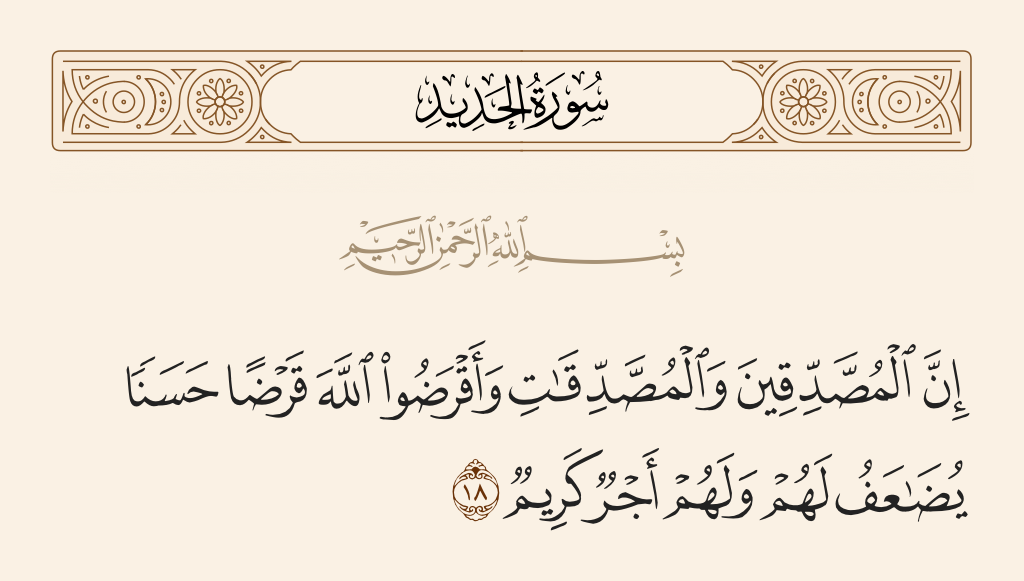 سُورَةُ الحَدِيدِ
بِسْمِ ٱللَّهِ ٱلرَّحْمَٰنِ ٱلرَّحِيمِ
إِنَّ ٱلْمُصَّدِّقِينَ وَٱلْمُصَّدِّقَٰتِ وَأَقْرَضُوا۟ ٱللَّهَ قَرْضًا حَسَنًا
يُضَٰعَفُ لَهُمْ وَلَهُمْ أَجْرٌ كَرِيمٌ ١٨